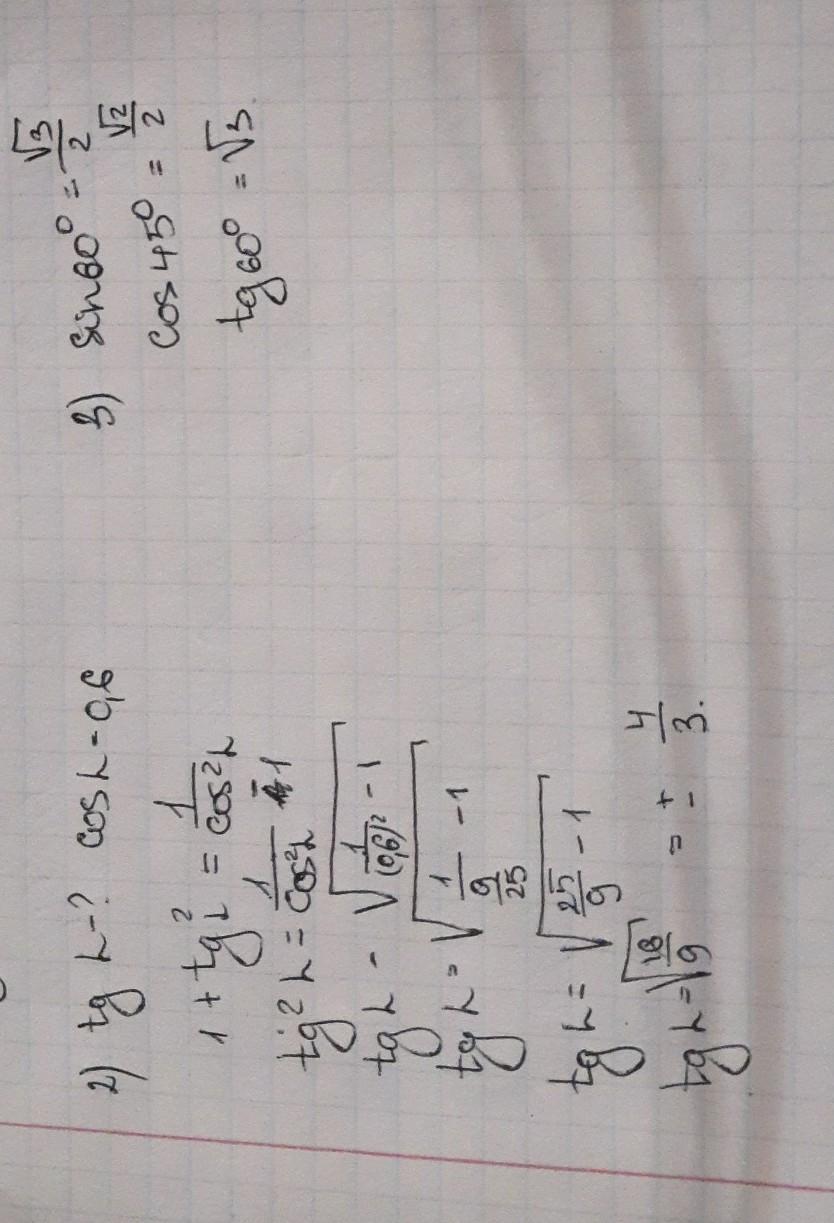 2) tg α -? cos α - 0,6
1 + tg²α = 1/cos²α
tg²α = 1/cos²α - 1
tg α - √(1/(0,6)² - 1)
tg α = √(1/(9/25) - 1)
tg α = √(25/9 - 1)
tg α = √(16/9) = ± 4/3.
3) sin 60° = √3/2
cos 45° = √2/2
tg 60° = √3.